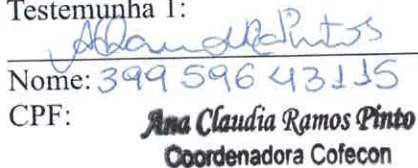 Testemunha 1:
Nome: 399 596 431 15
CPF:
Ana Claudia Ramos Pinto
Coordenadora Cofecon